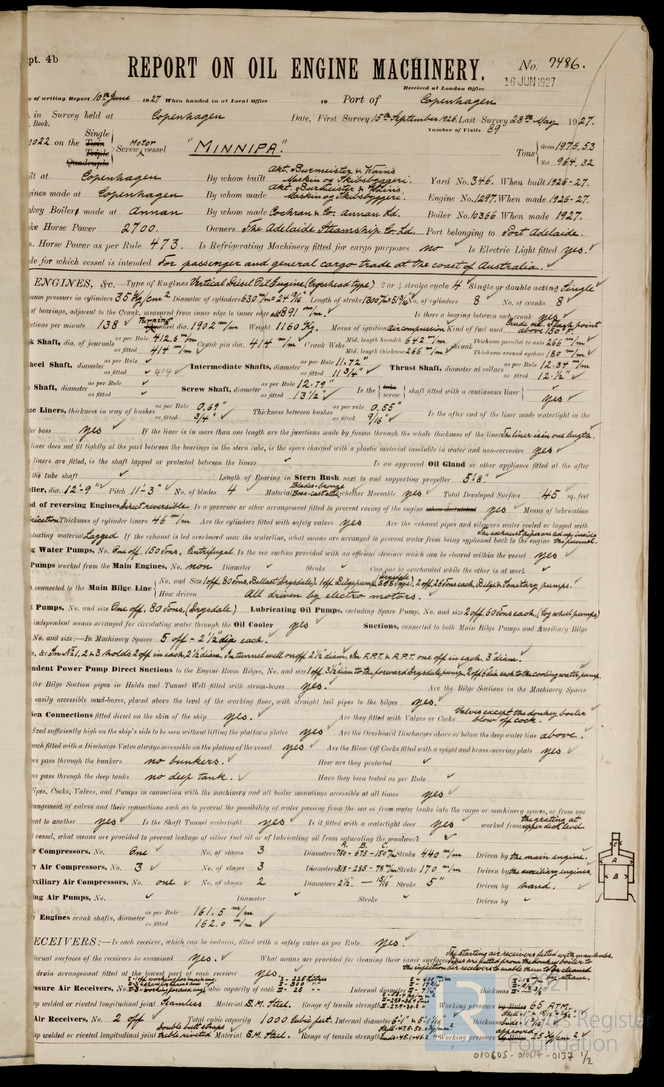 pt. 4b
REPORT ON OIL ENGINE MACHINERY.
No. 7486.
Received at London Office 16 JUN 1927
of writing Report 10th June 1927 When handed in at Local Office 19 Port of Copenhagen
in Survey held at Copenhagen Date, First Survey 15th September 1926 Last Survey 28th May 1927.
Book. Number of Visits 89
Single
on the Twin Screw vessel Motor "MINNIPA." Tons Gross 1975.53
Triple
Quadruple Net 964.32
lt at Copenhagen By whom built Akt. Burmeister & Wain's Maskin og Skibsbyggeri. Yard No. 346. When built 1926-27.
gines made at Copenhagen By whom made Akt. Burmeister & Wain's Maskin og Skibsbyggeri. Engine No. 1297. When made 1926-27.
nkey Boilers made at Annan By whom made Cochran & Co. Annan Ld. Boiler No. 10366 When made 1927.
ke Horse Power 2700. Owners The Adelaide Steamship Co. Ld. Port belonging to Port Adelaide.
m. Horse Power as per Rule 473. Is Refrigerating Machinery fitted for cargo purposes no Is Electric Light fitted yes.
de for which vessel is intended For passenger and general cargo trade at the coast of Australia.
ENGINES, &c. Type of Engines Vertical Diesel Oil Engine (Crosshead type) 2 or 4 stroke cycle 4 Single or double acting Single
mum pressure in cylinders 35 kg/cm² Diameter of cylinders 630 m/m = 24 13/16" Length of stroke 1300 m/m No. of cylinders 8 No. of cranks 8
of bearings, adjacent to the Crank, measured from inner edge to inner edge 891 m/m. Is there a bearing between each crank yes
utions per minute 138 Turning wheel dia. 1902 m/m Weight 1160 Kg. Means of ignition air compression Kind of fuel used Crude oil. Flash point above 150° F.
k Shaft, dia. of journals as per Rule 412.5 m/m as fitted 414 m/m Crank pin dia. 414 m/m Crank Webs Mid. length breadth 642 m/m Mid. length thickness 266 m/m Thickness parallel to axis 266 m/m Thickness around eyehole 180 m/m
heel Shaft, diameter as per Rule as fitted Intermediate Shafts, diameter as per Rule 11.72" as fitted 11 3/4" Thrust Shaft, diameter at collars as per Rule 12.34 as fitted 12 1/2"
Shaft, diameter as per Rule as fitted Screw Shaft, diameter as per Rule 12.79" as fitted 13 1/2" Is the screw shaft fitted with a continuous liner yes
ze Liners, thickness in way of bushes as per Rule 0.69" as fitted 3/4" Thickness between bushes as per rule 0.55" as fitted 9/16" Is the after end of the liner made watertight in the
er boss yes If the liner is in more than one length are the junctions made by fusion through the whole thickness of the liner The liner is in one length.
liner does not fit tightly at the part between the bearings in the stern tube, is the space charged with a plastic material insoluble in water and non-corrosive yes
liners are fitted, is the shaft lapped or protected between the liners Is an approved Oil Gland or other appliance fitted at the after
the tube shaft Length of Bearing in Stern Bush next to and supporting propeller 5'8"
ller, dia. 12'-9" Pitch 11'-3" No. of blades 4 Material Blades-bronze Boss-cast steel whether Moveable yes Total Developed Surface 45 sq. feet
d of reversing Engines Direct reversible Is a governor or other arrangement fitted to prevent racing of the engine yes Means of lubrication
Thickness of cylinder liners 46 m/m Are the cylinders fitted with safety valves yes Are the exhaust pipes and silencers water cooled or lagged with
ducting material Lagged If the exhaust is led overboard near the waterline, what means are arranged to prevent water from being syphoned back to the engine The exhaust pipes are led up inside the funnel.
g Water Pumps, No. One off. 150 tons, Centrifugal Is the sea suction provided with an efficient strainer which can be cleared within the vessel yes
Pumps worked from the Main Engines, No. non Diameter Stroke Can one be overhauled while the other is at work
connected to the Main Bilge Line No. and Size 1 off, 80 tons, Ballast (Drysdale). 1 off Bilge pump 2 off 25 tons each, Bilge & Sanitary pumps.
How driven All driven by electro motors.
Pumps, No. and size One off. 80 tons, (Drysdale) Lubricating Oil Pumps, including Spare Pump, No. and size 2 off 60 tons each, (Cog wheel pumps)
independent means arranged for circulating water through the Oil Cooler yes Suctions, connected to both Main Bilge Pumps and Auxiliary Bilge
No. and size:—In Machinery Spaces 5 off - 2 1/2" dia each.
s, &c. In No 1, 2 & 3 holds 2 off in each, 2 1/2" diam. In tunnel well on off 2 1/2" diam. In F.P.T & A.P.T. one off in each, 3" diam.
ndent Power Pump Direct Suctions to the Engine Room Bilges, No. and size 1 off 3 1/2" diam to the forward Drysdale pump. 2 off 6" dia each to the cooling water pump.
the Bilge Suction pipes in Holds and Tunnel Well fitted with strum-boxes yes. Are the Bilge Suctions in the Machinery Spaces
easily accessible mud-boxes, placed above the level of the working floor, with straight tail pipes to the bilges yes.
Sea Connections fitted direct on the skin of the ship yes. Are they fitted with Valves or Cocks Valves except the donkey boiler blow off cock.
fixed sufficiently high on the ship's side to be seen without lifting the platform plates yes Are the Overboard Discharges above or below the deep water line above.
each fitted with a Discharge Valve always accessible on the plating of the vessel yes Are the Blow Off Cocks fitted with a spigot and brass covering plate yes
es pass through the bunkers no bunkers. How are they protected
es pass through the deep tanks no deep tank. Have they been tested as per Rule
Pipes, Cocks, Valves, and Pumps in connection with the machinery and all boiler mountings accessible at all times yes
rangement of valves and their connections such as to prevent the possibility of water passing from the sea or from water tanks into the cargo or machinery spaces, or from one
nt to another yes Is the Shaft Tunnel watertight yes Is it fitted with a watertight door yes worked from the grating at upper deck level
vessel, what means are provided to prevent leakage of either fuel oil or of lubricating oil from saturating the woodwork
Compressors, No. One No. of stages 3 Diameters A. 780 - B. 675 - C. 150 m/m Stroke 440 m/m Driven by the main engine.
Air Compressors, No. 3 No. of stages 3 Diameters 318-285-78 m/m Stroke 170 m/m Driven by the auxiliary engines.
uxiliary Air Compressors, No. one No. of stages 2 Diameters 2 1/2" - 15/16" Stroke 5" Driven by hand.
ing Air Pumps, No. Diameter Stroke Driven by
Engines crank shafts, diameter as per Rule 161.5 m/m as fitted 162.0 m/m
A
B
ECEIVERS:—Is each receiver, which can be isolated, fitted with a safety valve as per Rule yes.
ternal surfaces of the receivers be examined yes. What means are provided for cleaning their inner surfaces The starting air receivers fitted with manholes. Pipes are fitted from the donkey boiler to the injection air receivers to enable them to be cleaned by steam.
drain arrangement fitted at the lowest part of each receiver yes
ssure Air Receivers, No. Cubic capacity of each Internal diameter thickness
p welded or riveted longitudinal joint Seamless Material S.M. Steel. Range of tensile strength Working pressure by Rules 65 ATM.
Air Receivers, No. 2 off Total cubic capacity 1000 Cubic feet. Internal diameter thickness
p welded or riveted longitudinal joint double butt straps treble riveted Material S.M. Steel. Range of tensile strength Working pressure by Rules 25 kg/cm²
© 2021
Lloyd's Register
Foundation
010605-010614-0137 1/2